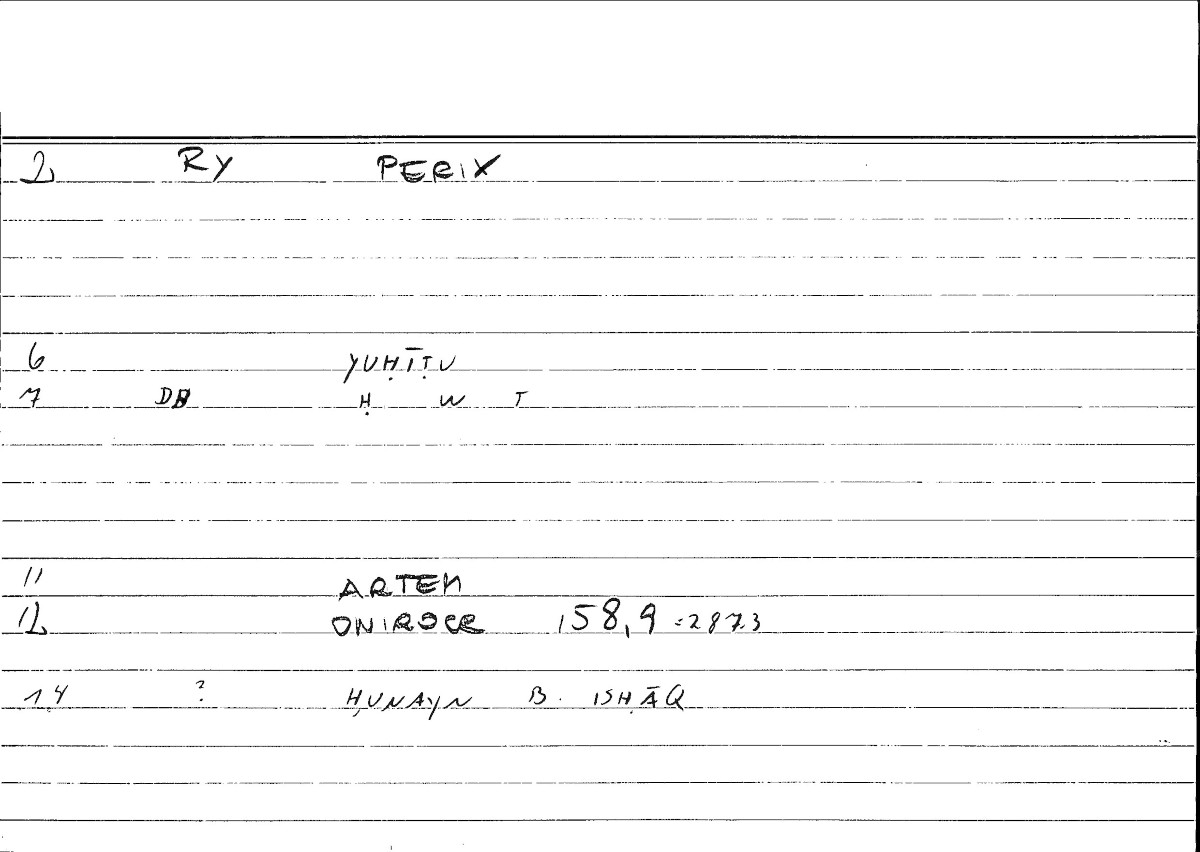 2 RY PERIX
6 YUḤĪṬU
7 Ḥ W T
11 ARTEM
12 ONIROCR 158,9 = 287.3
14 ? ḤUNAYN B. ISḤĀQ